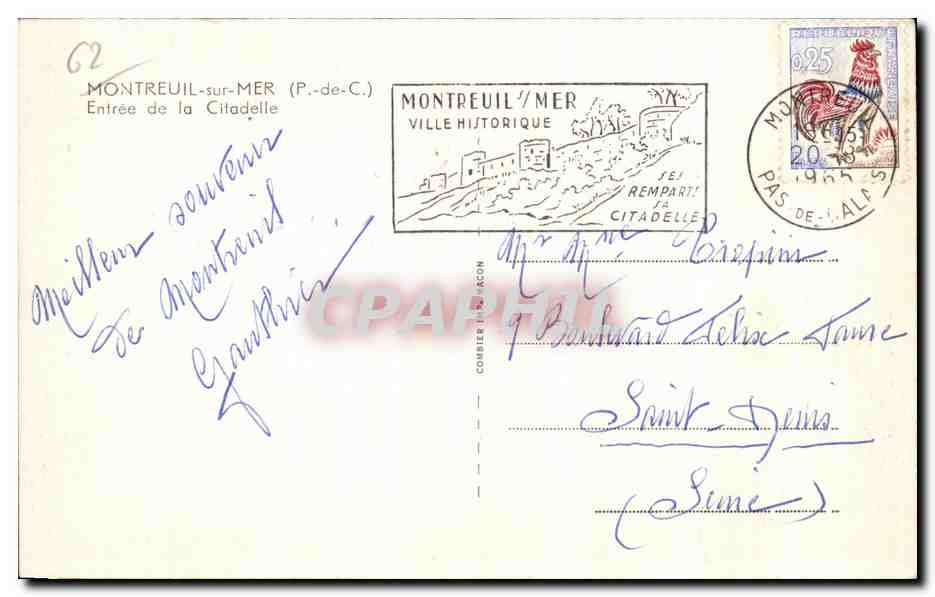 62
MONTREUIL-sur-MER (P.-de-C.)
Entrée de la Citadelle
MONTREUIL S/ MER
VILLE HISTORIQUE
SES
REMPARTS
SA
CITADELLE
0,25
MONTREUIL
20
1965
PAS-DE-CALAIS
Meilleur souvenir
de Montreuil
Gauthier
COMBIER IMP. MACON
CPAPHIL
Mr Mme Crepin
9 Boulevard Felix Faure
Saint-Denis
(Seine)